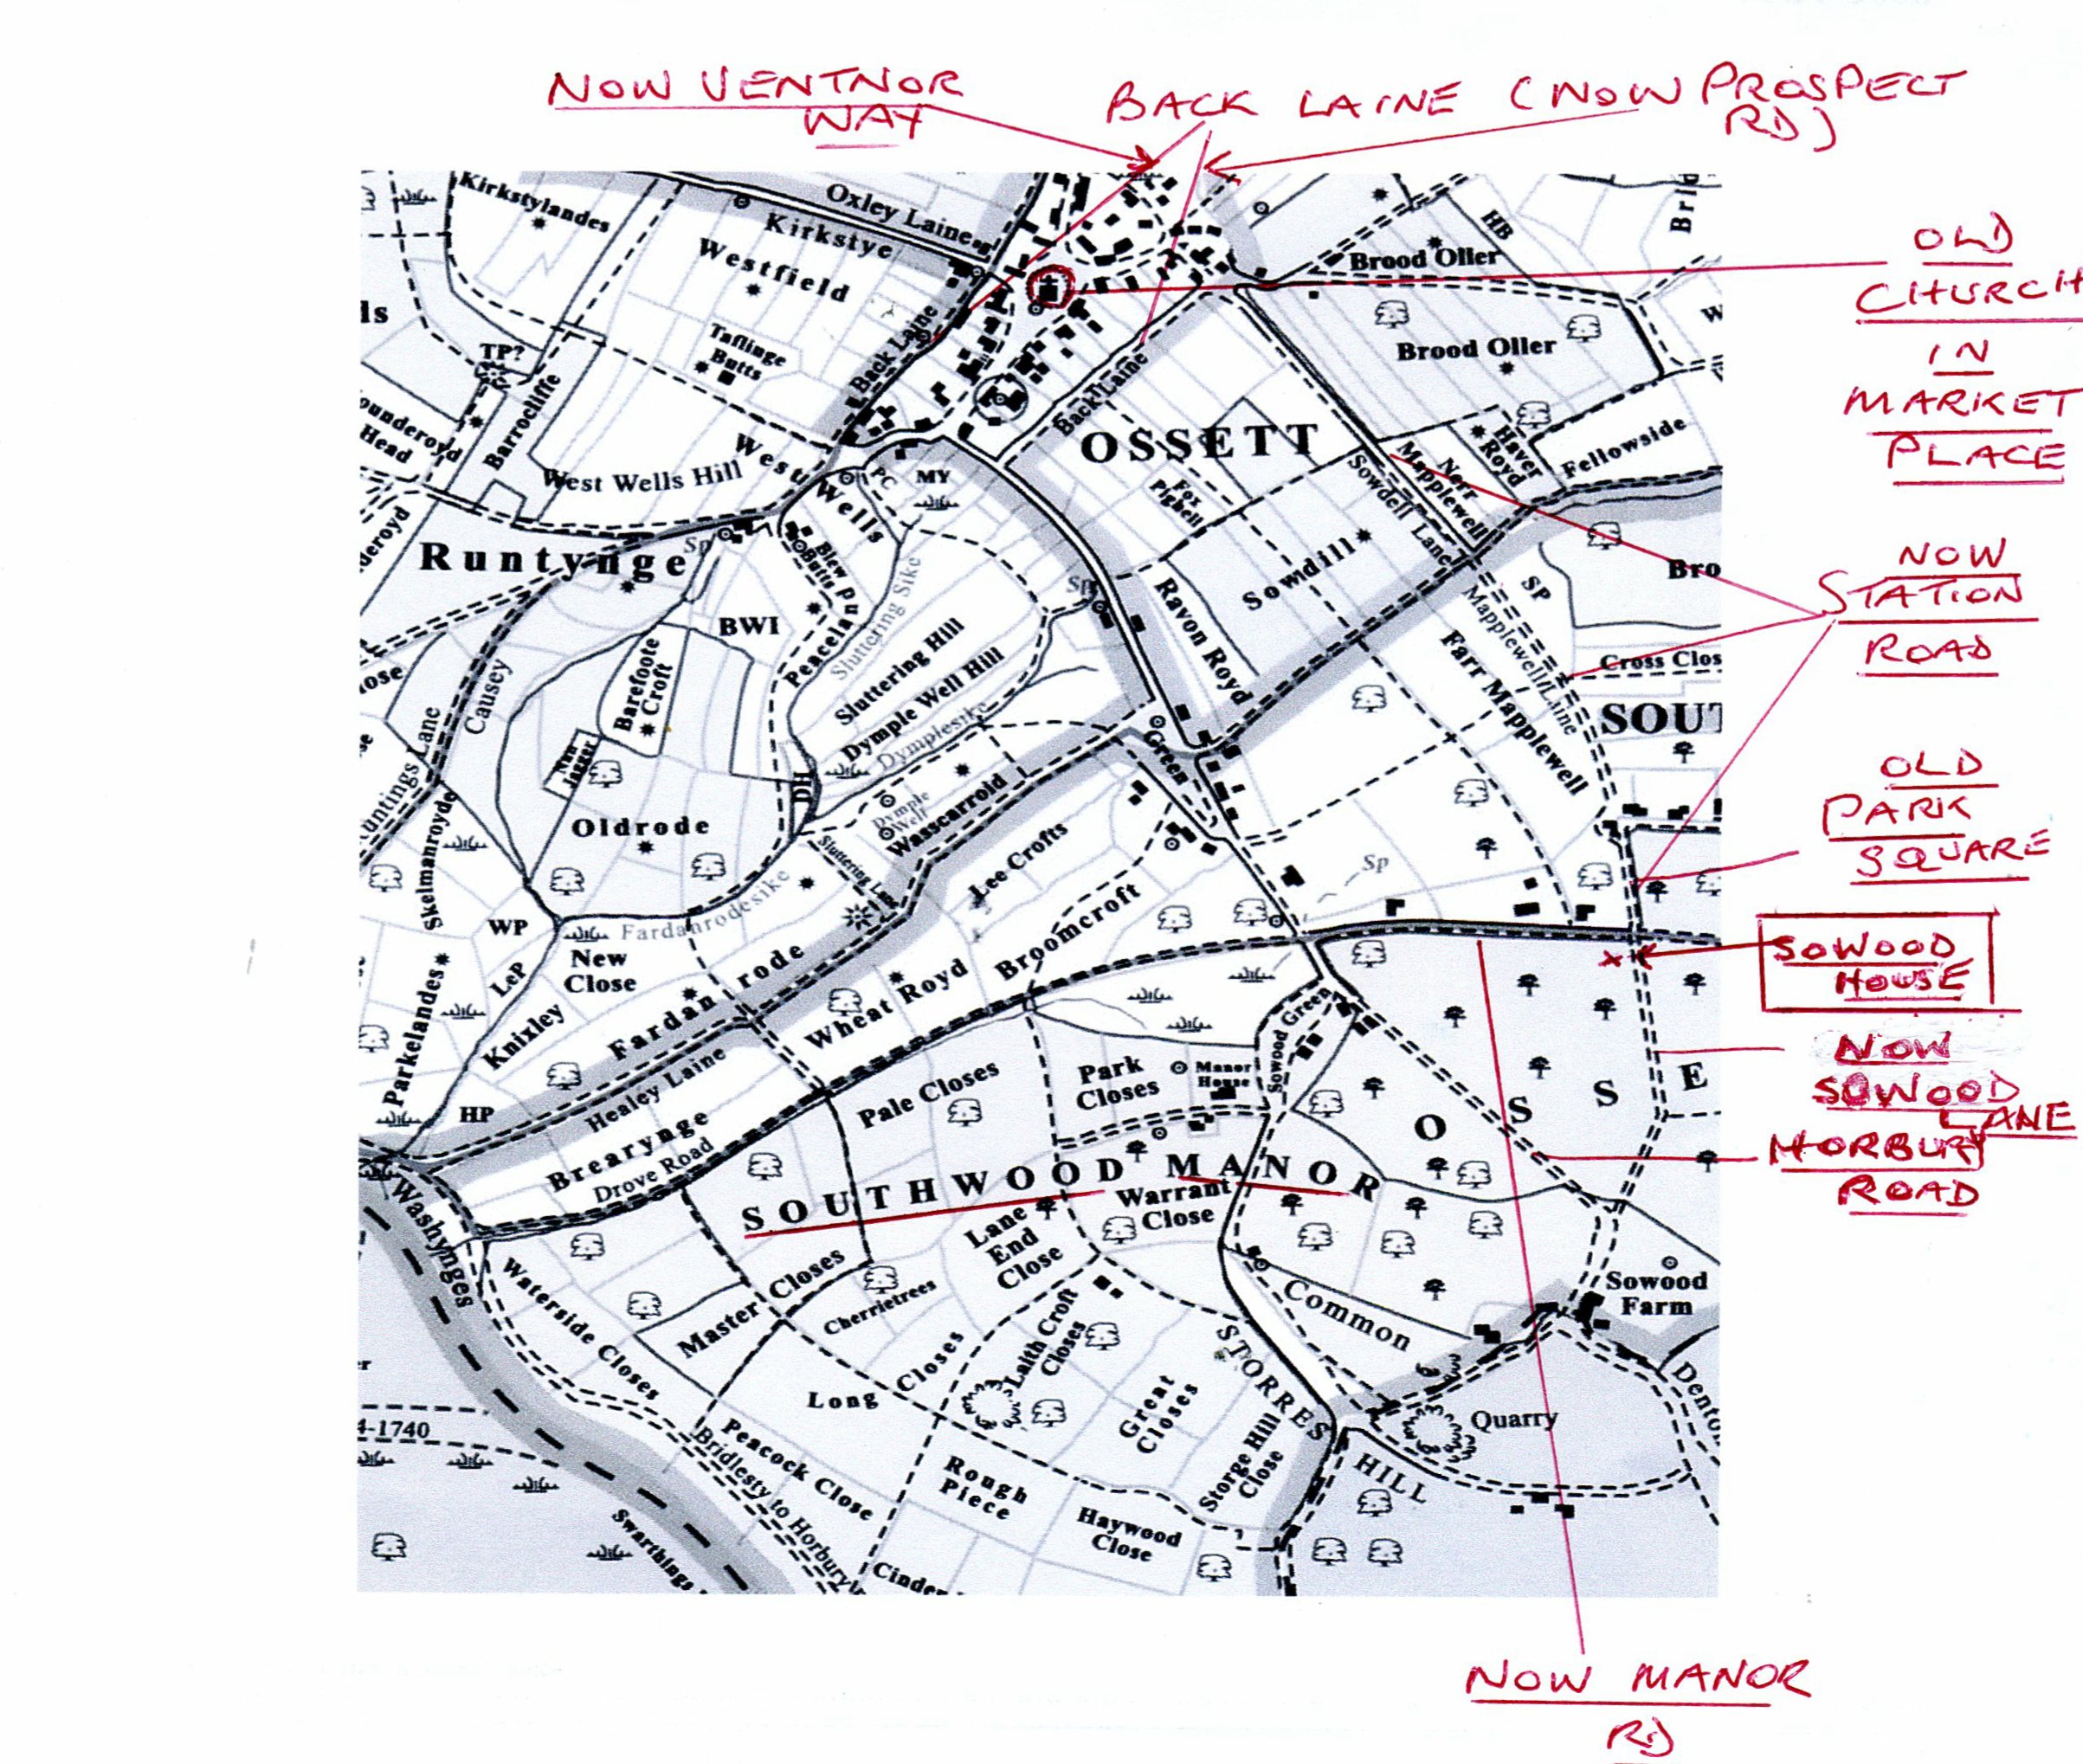 NOW VENTNOR
WAY
BACK LAINE (NOW PROSPECT
RD)
OLD
CHURCH
IN
MARKET
PLACE
NOW
STATION
ROAD
OLD
PARK
SQUARE
SOWOOD
HOUSE
NOW
SOWOOD
LANE
HORBURY
ROAD
NOW MANOR
RD
Kirkstylandes
Oxley Laine
Kirkstye
Westfield
HB
Brood Oller
Brood Oller
ls
TP?
Taflinge
Butts
Back Laine
Back Laine
ounderoyd
Head
Barrocliffe
OSSETT
Haver
Royd
Fellowside
Nerr
Mapplewell
Sowdell Lane
West Wells Hill
West Wells
PC
MY
Fox
Pighell
Sowdill
deroyd
Runtynge
Sp
Blew
Butts
Sp
Ravon Royd
SP
Bro
BWI
Peacelan
Sluttering Sike
Sluttering Hill
Dymple Well Hill
Dymplesike
Mapplewell Laine
Farr Mapplewell
Cross Clos
SOUT
ose
Causey
Barefoote
Croft
Nan
Jagger
Oldrode
DH
Green
untings Lane
Skelmanroyde
Dymple
Well
Wasscarroid
Lee Crofts
Sp
WP
Fardanrodesike
New
Close
LeP
Knixley
Fardanrode
Wheat Royd
Broomcroft
Parkelandes
HP
Healey Laine
Brearynge
Drove Road
Pale Closes
Park
Closes
Manor
House
Sowood Green
O S S E
SOUTHWOOD MANOR
Warrant
Close
Lane
End
Close
Washynges
Waterside Closes
Master Closes
Cherrietrees
Common
Sowood
Farm
Laith Croft
Closes
STORRES
HILL
Denton
Long Closes
Great
Closes
Quarry
4-1740
Peacock Close
Bridlesty to Horbury
Rough
Piece
Storge Hill
Close
Haywood
Close
Swarthings
Cinder